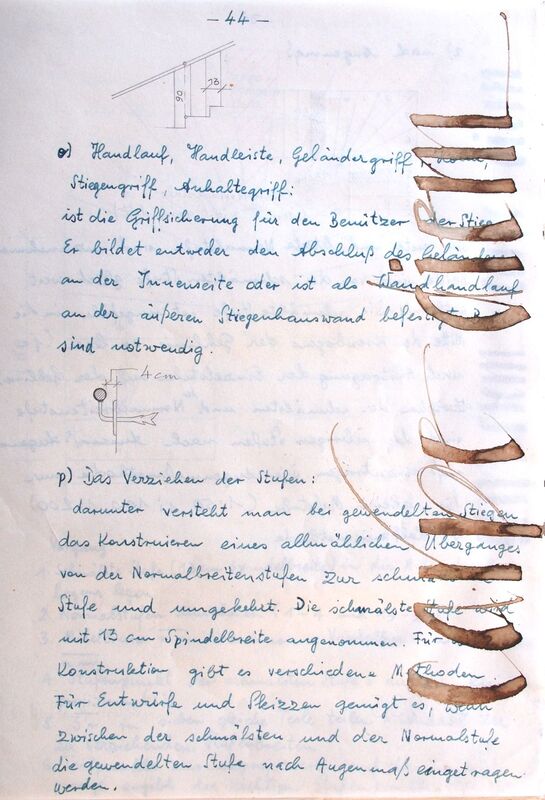 - 44 -
90
13
o) Handlauf, Handleiste, Geländergriff,
Stiegengriff, Anhaltegriff:
ist die Griffsicherung für den Benützer der Stiege
Er bildet entweder den Abschluß des Geländers
an der Innenseite oder ist als Wandhandlauf
an der äußeren Stiegenhauswand befestigt.
sind notwendig.
4 cm
p) Das Verziehen der Stufen:
darunter versteht man bei gewendelten Stiegen
das Konstruieren eines allmählichen Überganges
von der Normalbreitenstufen zur
Stufe und umgekehrt. Die schmälste Stufe wird
mit 13 cm Spindelbreite angenommen. Für
Konstruktion gibt es verschiedene Methoden.
Für Entwürfe und Skizzen genügt es, wenn
zwischen der schmälsten und der Normalstufe
die gewendelten Stufe nach Augenmaß eingetragen
werden.